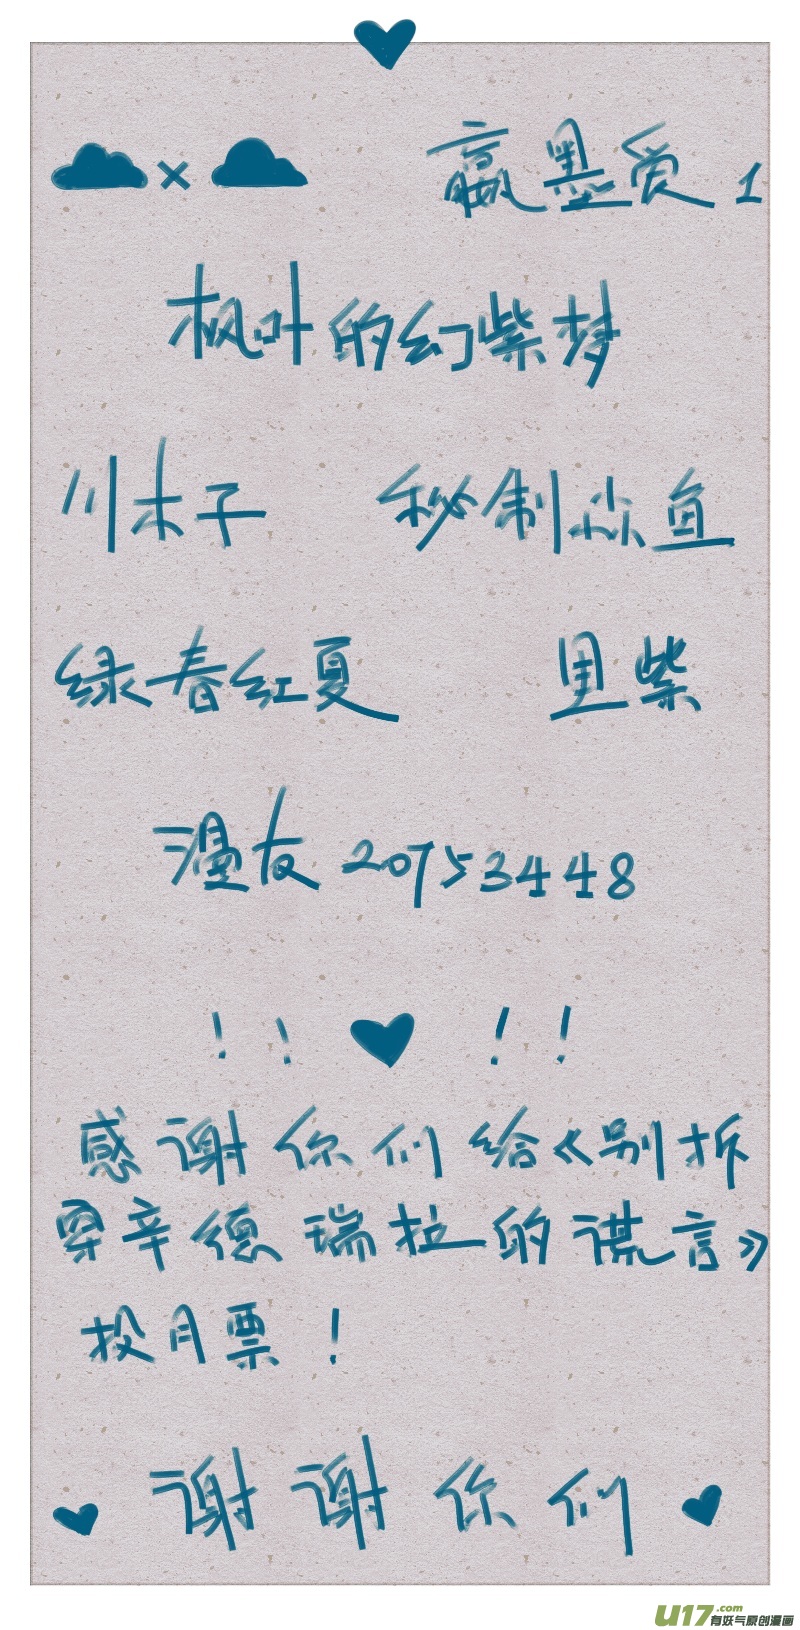 × 嬴墨爱1
枫叶的幻紫梦
川木子 秘制炒鱼
绿春红夏 里紫
漫友20753448
！！ ！！
感谢你们给《别拆
穿辛德瑞拉的谎言》
投月票！
谢谢你们
U17.com
有妖气原创漫画